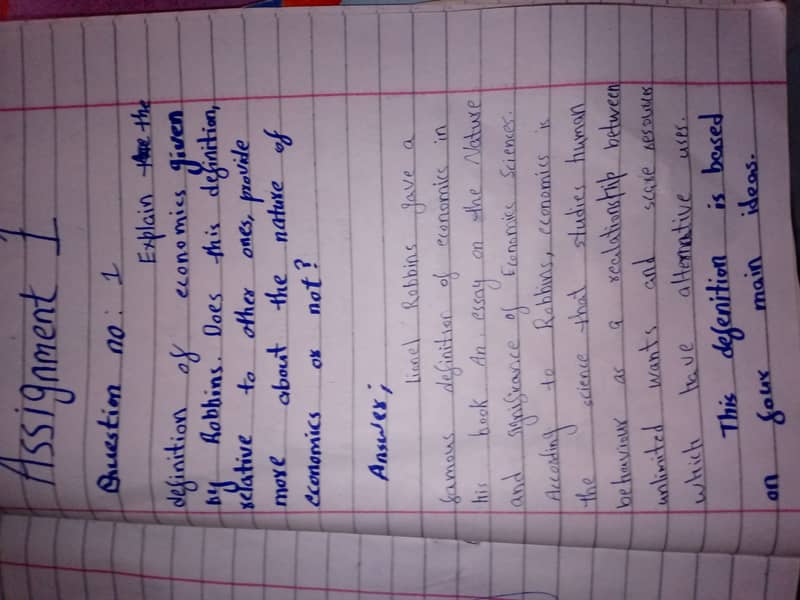 Assignment 1
Question no: 1
Explain the
definition of economics given
by Robbins. Does this definition,
relative to other ones, provide
more about the nature of
economics or not?
Answer;
Lionel Robbins gave a
famous definition of economics in
his book An essay on the Nature
and significance of Economics Sciences.
According to Robbins, economics is
the science that studies human
behaviour as a realationship between
unlimited wants and scare resources
which have alternative uses.
This defenition is based
on four main ideas.